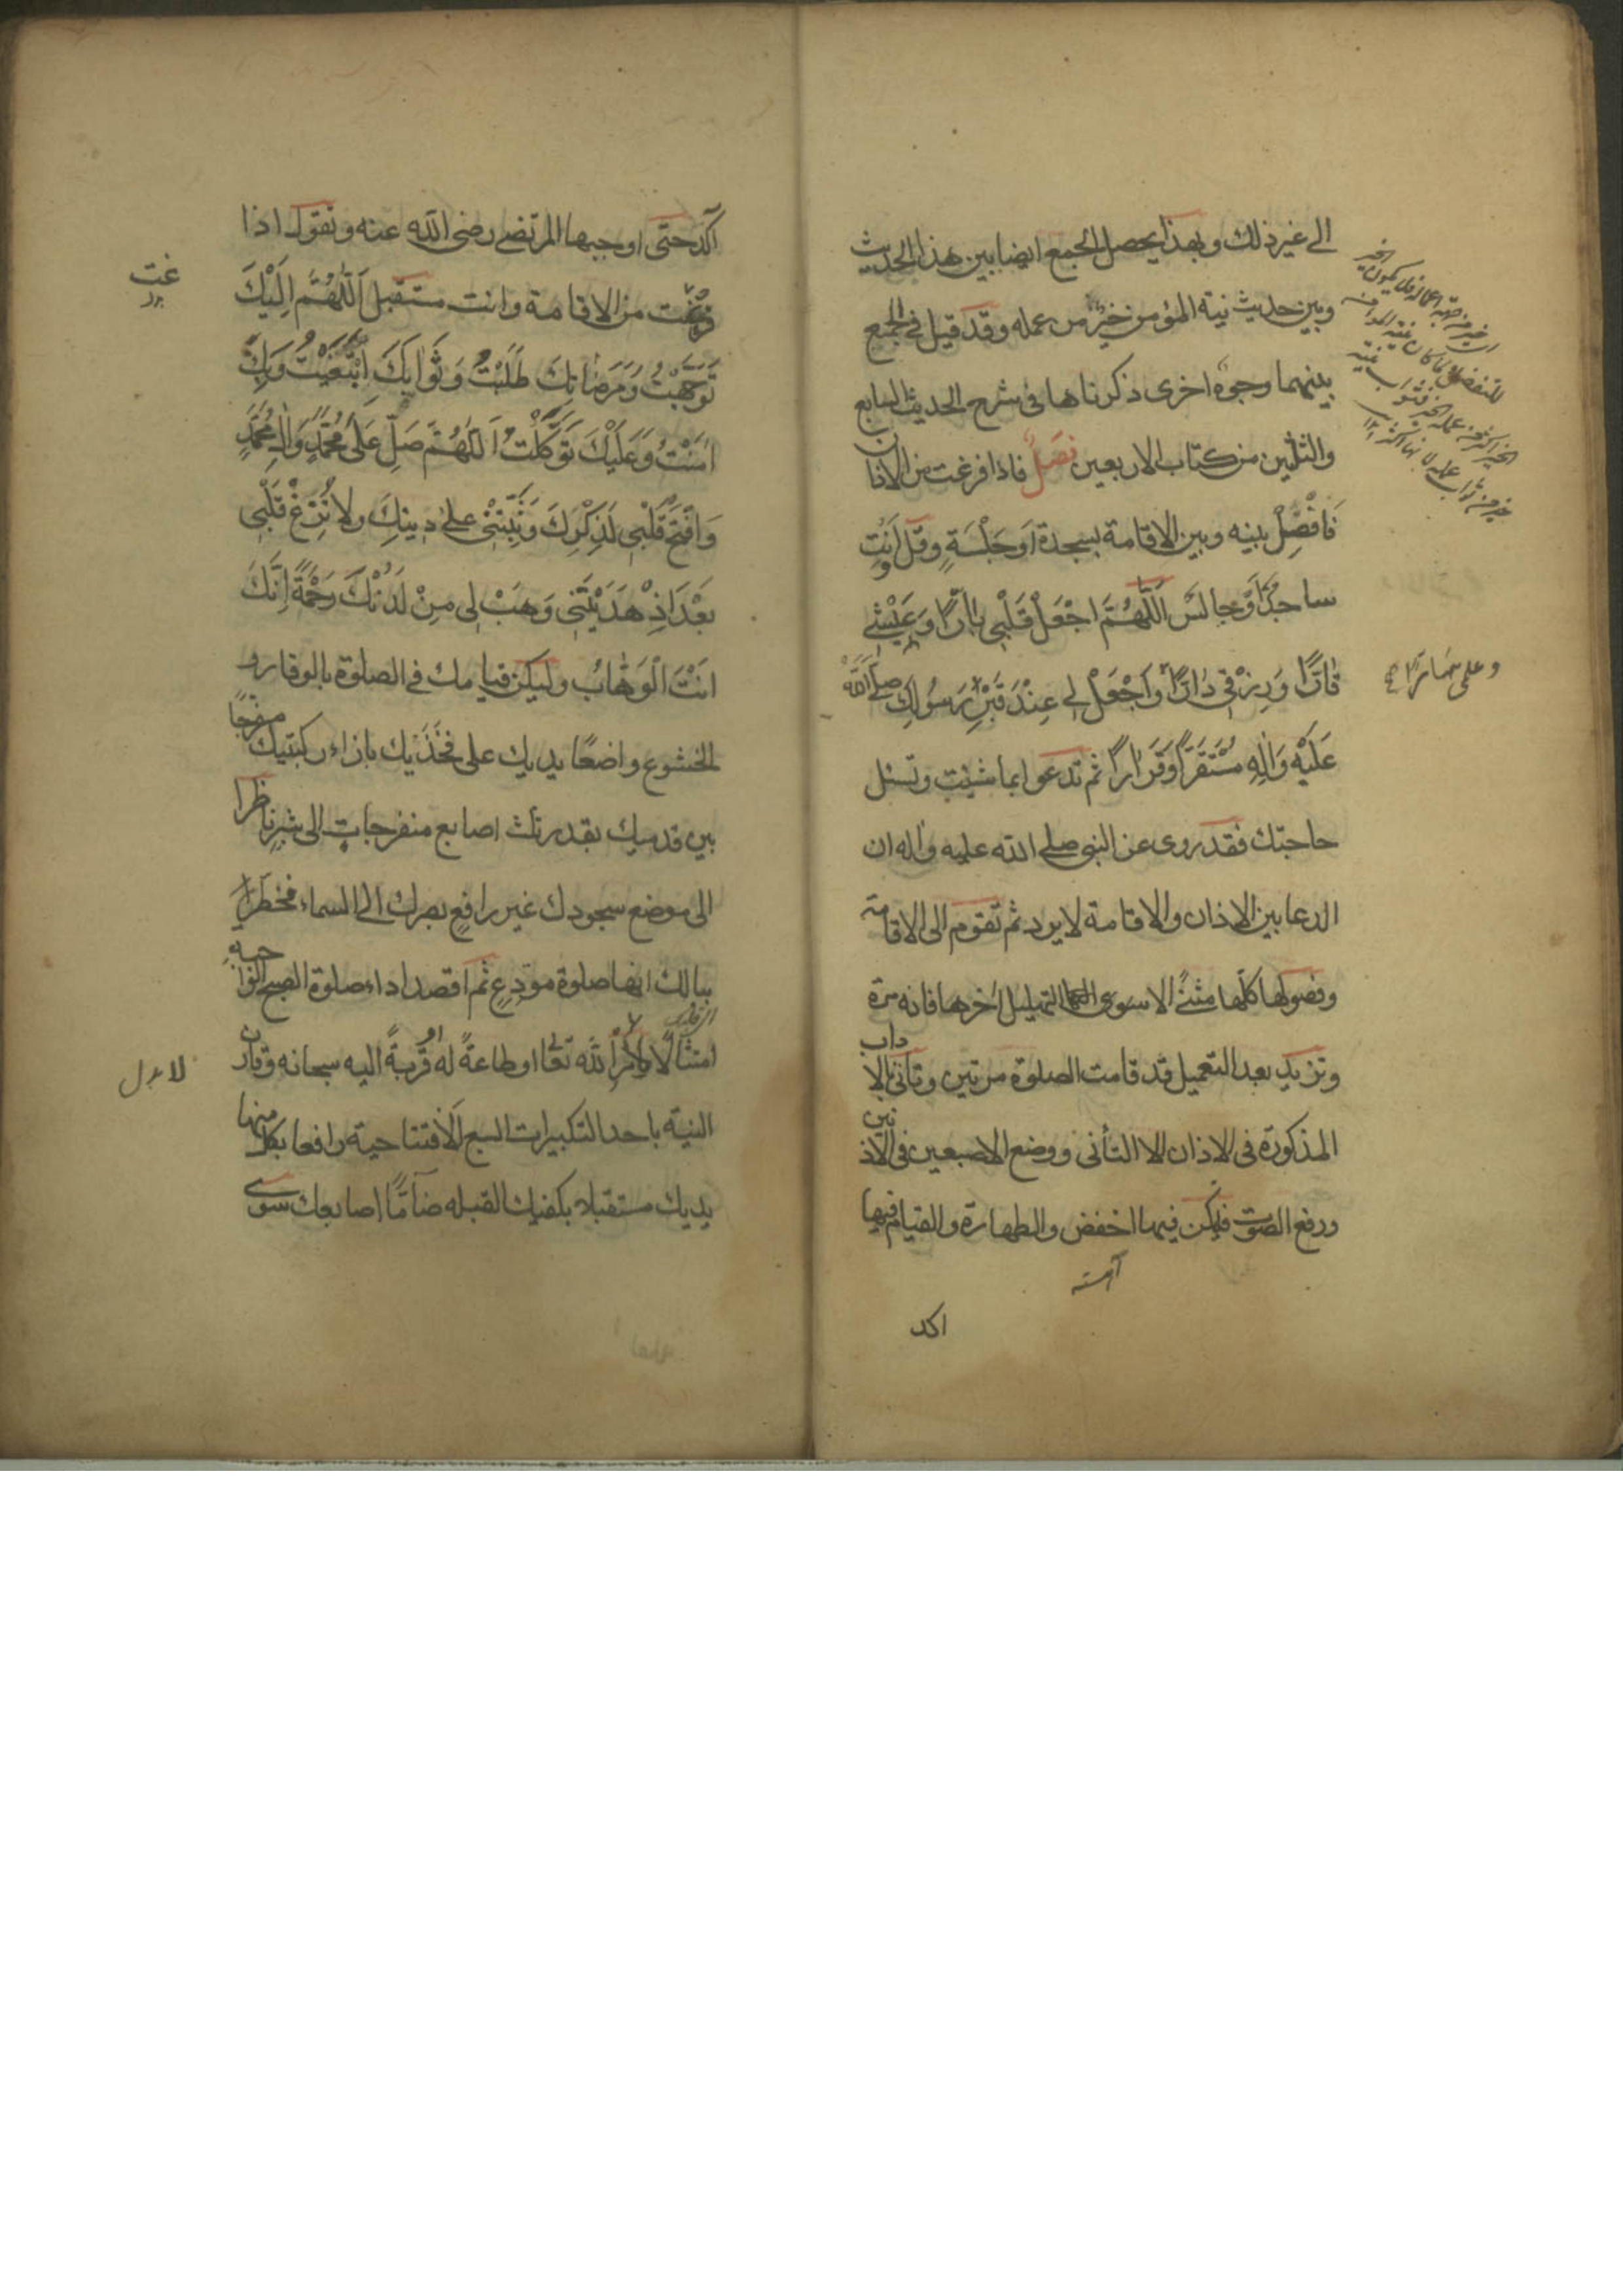 الى غير ذلك وبهذا يحصل الجمع ايضا بين هذا الحديث
وبين حديث نية المؤمن خير من عمله وقد قيل في الجمع
بينهما وجوه اخرى ذكرناها في شرح الحديث السابع
والثلثين من كتاب الاربعين فصل فاذا فرغت من الاذان
فَافْصِلْ بينه وبين الاقامة بسجدة اَوجَلْسَةٍ وقل وَاَنْتَ
ساجدٌ اَوجالسٌ اَللّٰهُمَّ اجْعَلْ قَلْبِي بٰارًّا وَعَيْشِي
قٰارًّا وَرِزْقِي دٰارًّا وَاجْعَلْ لِي عِنْدَ قَبْرِ رَسُولِكَ صلى اللّٰه
عَلَيْهِ وَاٰلِهِ مُسْتَقَرًّا وَقَرٰارًا ثم تدعوا بما شئت وتسئل
حاجتك فقد روى عن النبى صلى الله عليه واٰله ان
الدعا بين الاذان والاقامة لا يرد ثم تقوم الى الاقامة
وفصولها كلّها مثنىً الا سوى التهليل اٰخرها فانه مرّة
وتزيد بعد التعميل قد قامت الصلوة مرتين وتأتى بالاداب
المذكورة فى الاذان الا التأنى ووضع الاصبعين فى الاذنين
ورفع الصوت فليكن فيها اخفض والطهارة والقيام فيها
آهسته
اكد
اكد حتى اوجبها المرتضى رضى اللّه عنه وتقول اذا
فرغت من الاقامة وانت مستقبل اَللّٰهُمَّ اِلَيْكَ
تَوَجَّهْتُ وَمَرضٰاتِكَ طَلَبْتُ وَثَوٰابَكَ اِبْتَغَيْتُ وَبِكَ
اٰمَنْتُ وَعَلَيْكَ تَوَكَّلْتُ اَللّٰهُمَّ صَلِّ عَلىٰ مُحَمَّدٍ وَاٰلِ مُحَمَّدٍ
وَافْتَحْ قَلْبِي لِذِكْرِكَ وَثَبِّتْنِي عَلىٰ دِينِكَ وَلا تُزِغْ قَلْبِي
بَعْدَ اِذْ هَدَيْتَنِي وَهَبْ لِي مِنْ لَدُنْكَ رَحْمَةً اِنَّكَ
اَنْتَ الْوَهّٰابُ وليكن قيامك فى الصلوة بالوقار و
الخشوع واضعًا يديك على فخذيك بازاء ركبتيك مفرجًا
بين قدميك بقدر ثلث اصابع منفرجات الى شبر ناظرا
الى موضع سجودك غير رافع بصرك الى السماء مخطرا
ببالك انها صلوة مودع ثم اقصد اداء صلوة الصبح الواجبه
امتثالًا لامر الله تعالى او طاعةً له او قربةً اليه سبحانه وقارن
النية باحد التكبيرات السبع الافتتاحية رافعا بكل منها
يديك مستقبلا بكفيك القبله ضامًّا اصابعك سوى